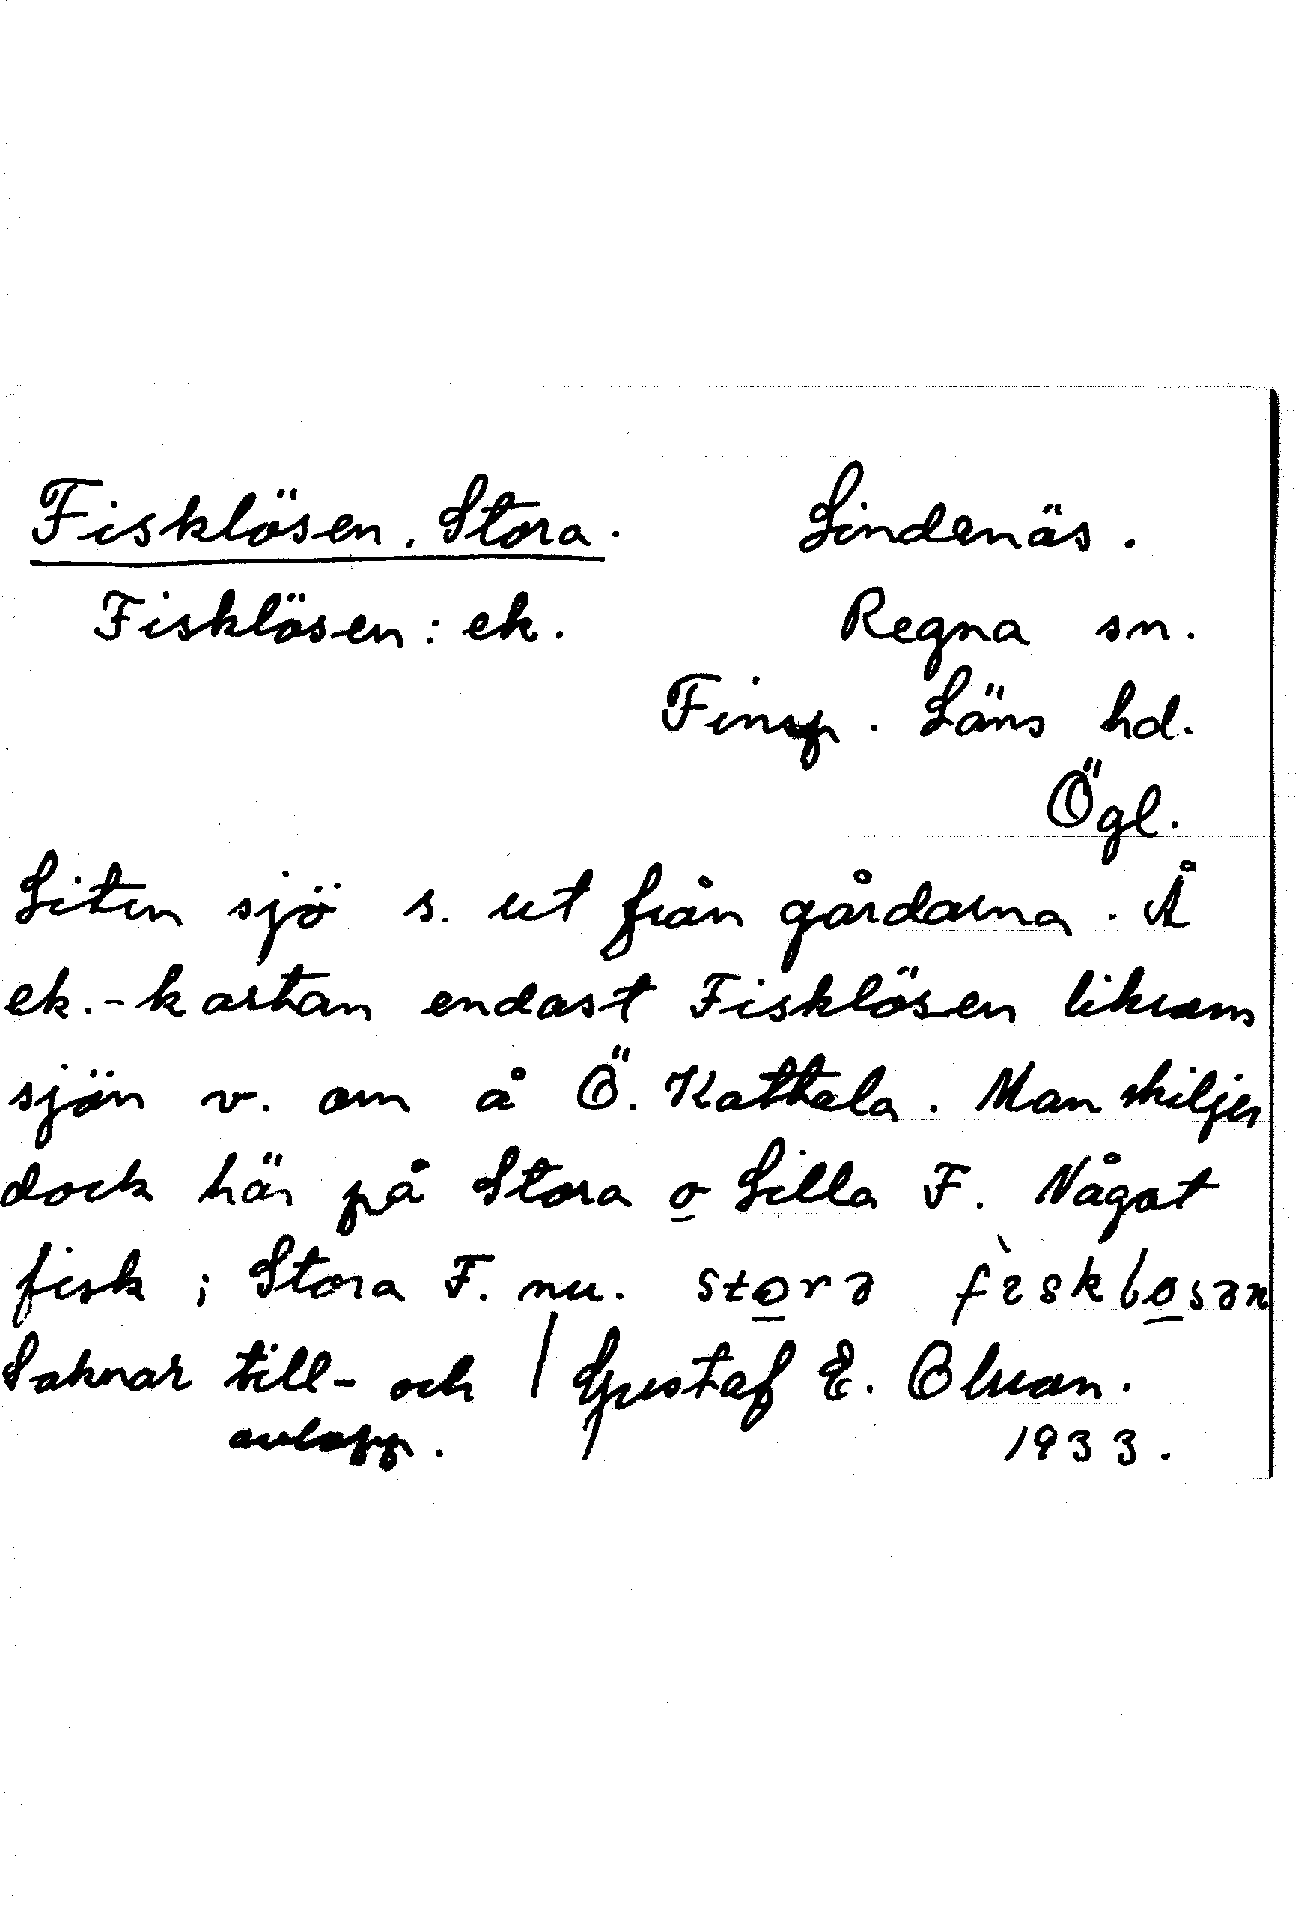 Fisklösen. Stora. Lindenäs.
Fisklösen: ek. Regna sn.
Finsp. Läns hd.
Ögl.
Liten sjö s. ut från gårdarna. Å
ek.-kartan endast Fisklösen liksom
sjön v. om å Ö. Kattala. Man skiljer
dock här på Stora o Lilla F. Något
fisk i Stora F. nu. stora fìsklosən
Saknar till- och / Gustaf E. Olsson.
avlopp. 1933.